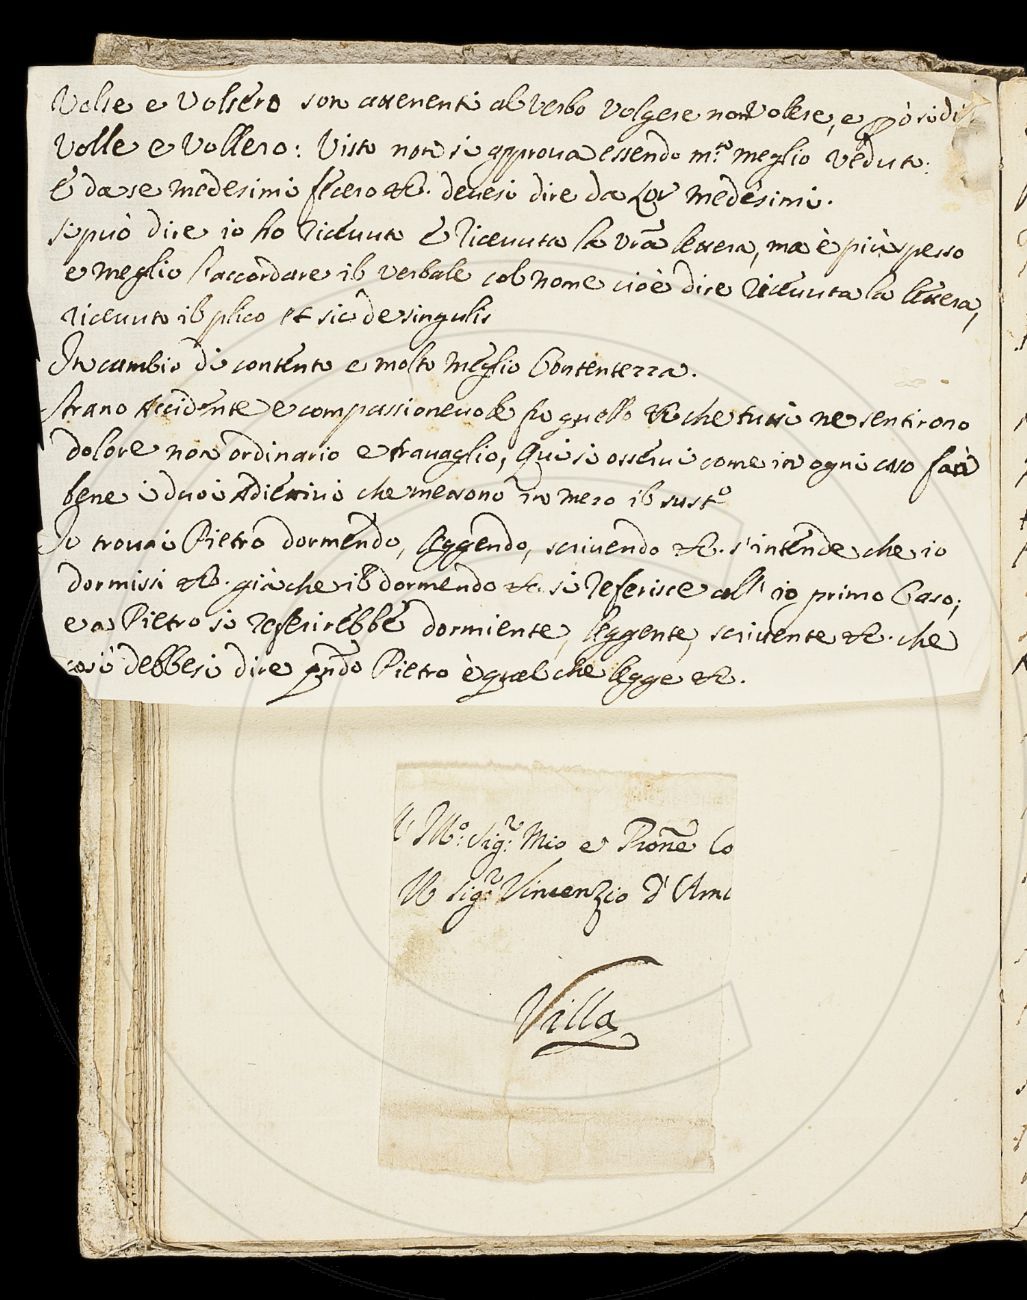 Volse e Volsero son attenenti al verbo volgere non volere, e però si di
Volle e Vollero: Visto non si approva essendo m.to meglio veduto:
E da se medesimi fecero &. devesi dire da Lor medesimi.
si può dire io ho ricevuto E ricevutta la Vrã lettera, ma è più spesso
e meglio l'accordare il verbale col nome cioè dire ricevuta la lettera,
ricevuto il plico et sic de singulis
In cambio di contento e molto meglio Contentezza.
strano Accidente e compassionevole fu quello che tutti ne sentirono
dolore non ordinario e travaglio, Qui si osservi come in ogni caso farà
bene i duoi Adiettivi che mettono in mezo il sust.o
Io trovai Pietro dormendo, leggendo, scrivendo &. s'intende che io
dormissi &. già che il dormendo &. si referisce all' io primo Caso;
e a Pietro si referirebbe dormiente, leggente, scrivente &. che
così debbesi dire qndo Pietro è quel che legge &.
M.o: Sig.r: Mio e Pronẽ Co
Il Sig.r Vincenzio d' Am
Villa